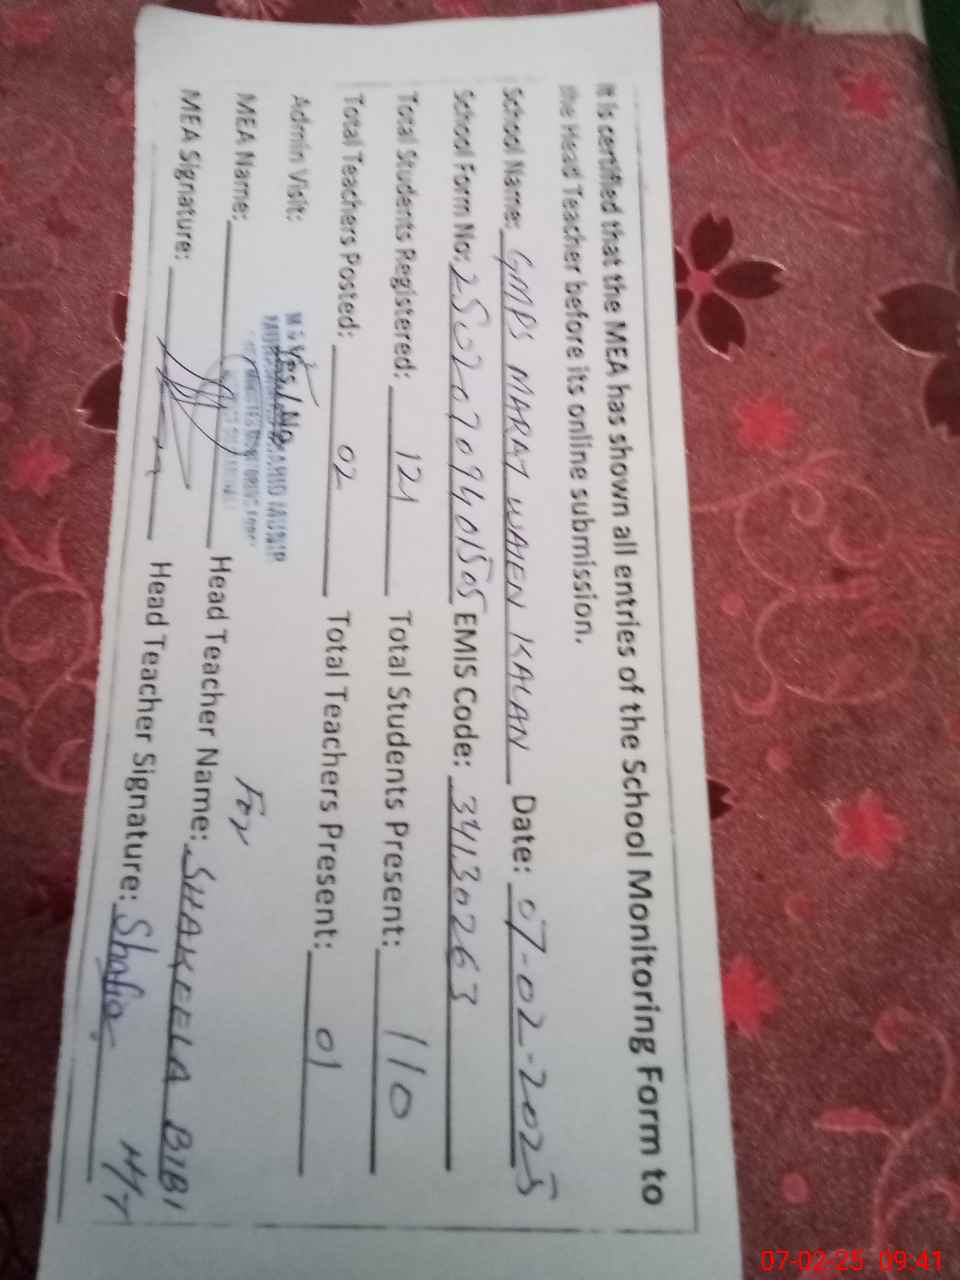 It is certified that the MEA has shown all entries of the School Monitoring Form to
the Head Teacher before its online submission.
School Name: GMPS MARAY WALEN KALAN Date: 07-02-2025
School Form No: EMIS Code: 34130263
Total Students Registered: 121 Total Students Present: 110
Total Teachers Posted: 02 Total Teachers Present: 01
Admin Visit: Yes / No
For
MEA Name: Head Teacher Name: SHAKEELA BIBI
MEA Signature: Head Teacher Signature: Shafia
07-02-25 09:41